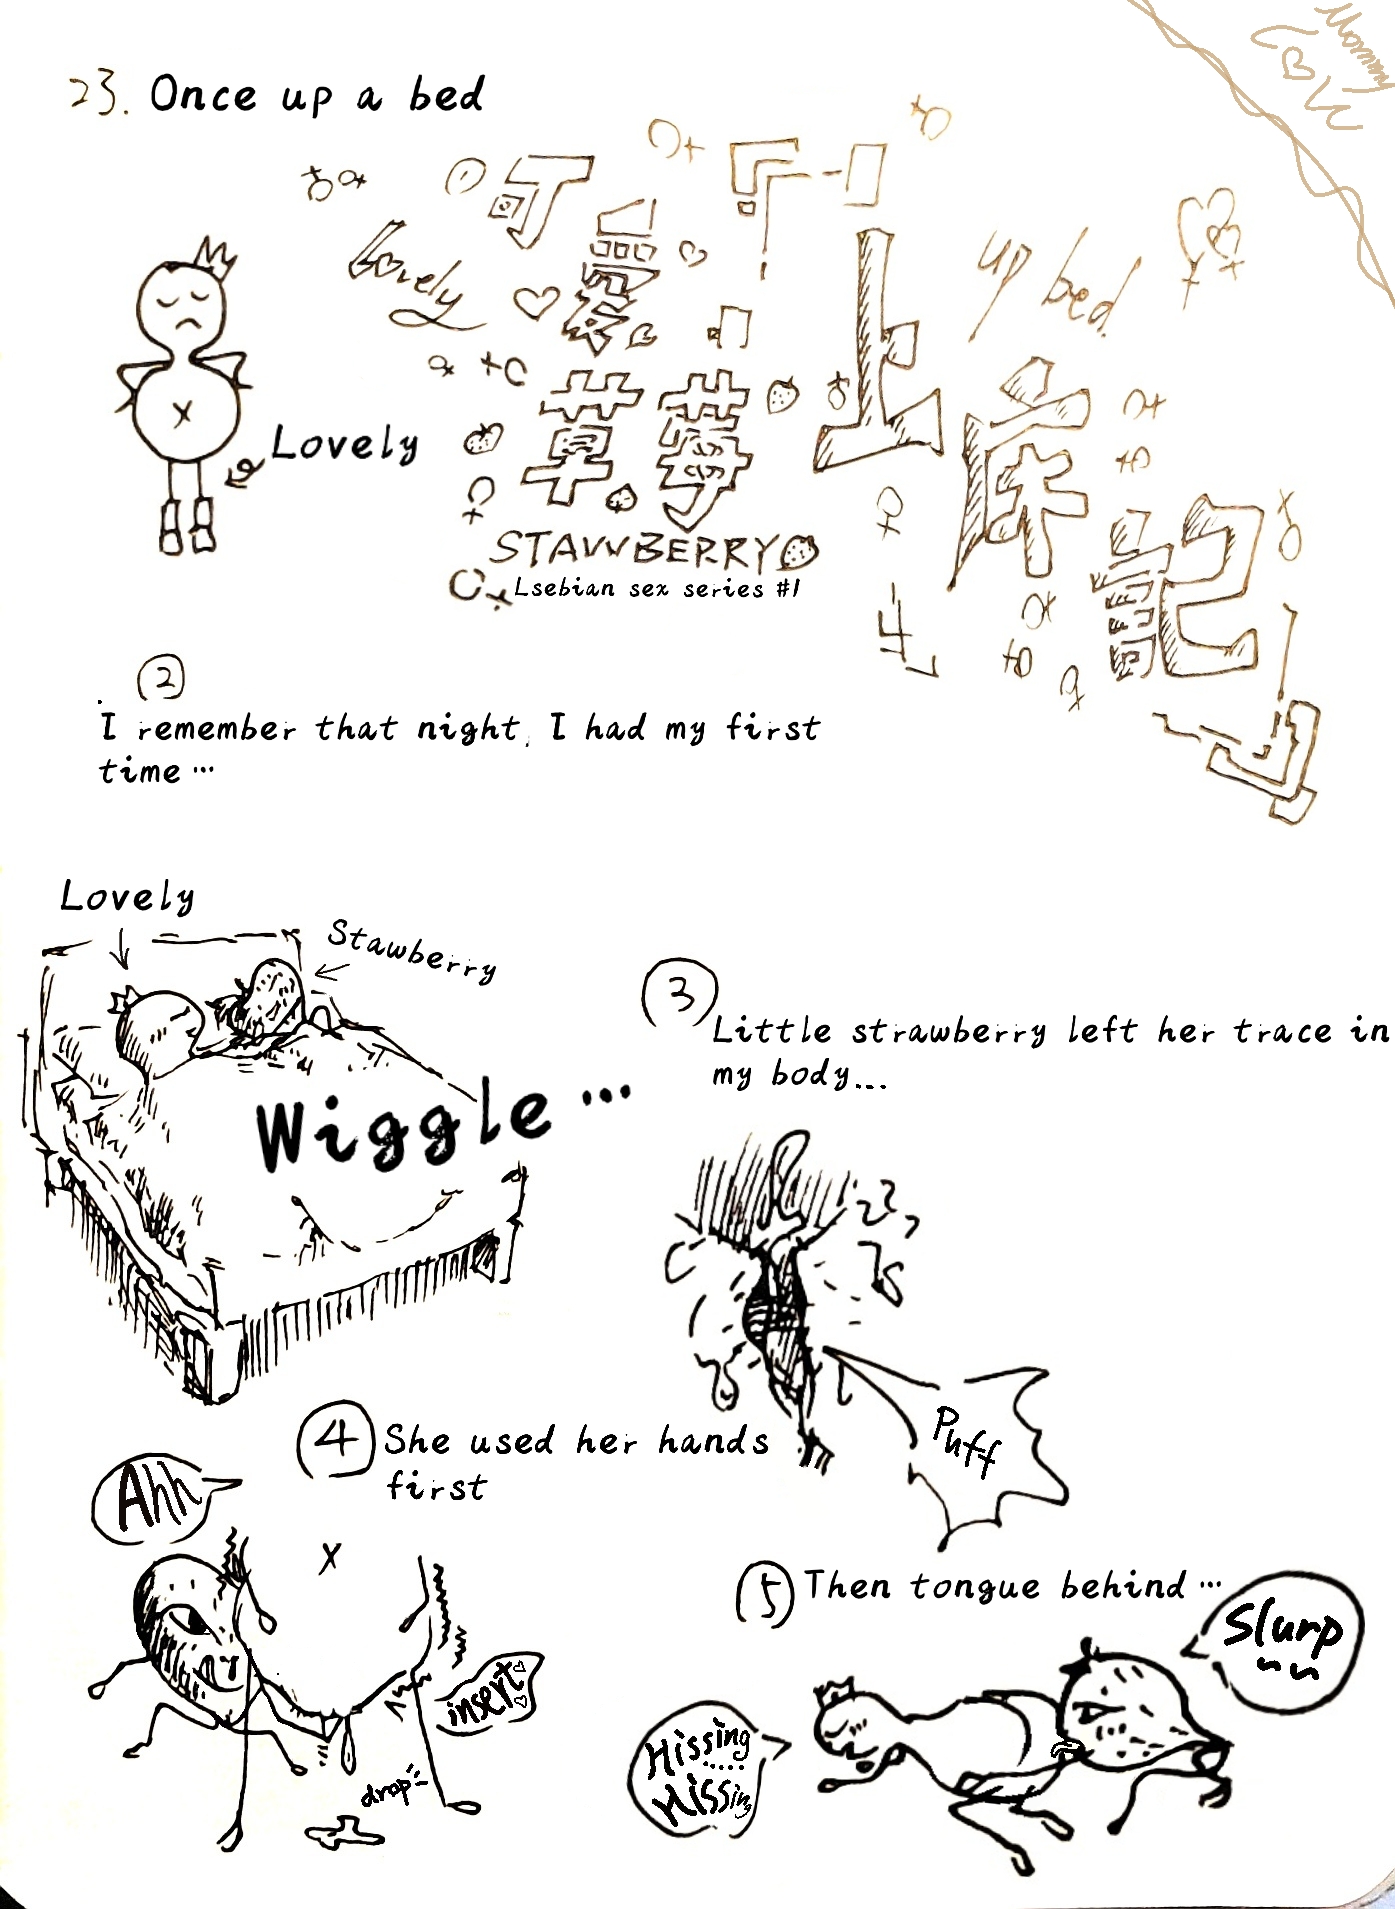 23. Once up a bed
Mommy
可
愛
Lovely
草莓
STAWBERRY
Lsebian sex series #1
上床記
up bed
Lovely
2
I remember that night, I had my first
time…
Lovely
Stawberry
Wiggle…
3
Little strawberry left her trace in
my body...
Puff
4
She used her hands
first
Ahh
X
insert
drop
5
Then tongue behind…
Slurp
Hissing
Hissing